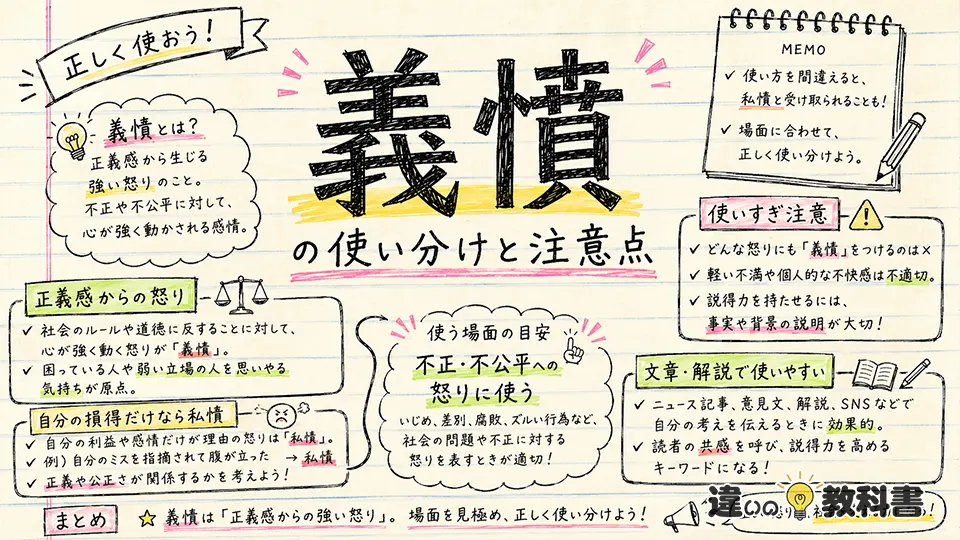 正しく使おう！
義憤
の使い分けと注意点
MEMO
✓ 使い方を間違えると、
私憤と受け取られることも！
✓ 場面に合わせて、
正しく使い分けよう。
義憤とは？
正義感から生じる
強い怒りのこと。
不正や不公平に対して、
心が強く動かされる感情。
正義感からの怒り
✓ 社会のルールや道徳に反することに対して、
心が強く動く怒りが「義憤」。
✓ 困っている人や弱い立場の人を思いやる
気持ちが原点。
自分の損得だけなら私憤
✓ 自分の利益や感情だけが理由の怒りは「私憤」。
✓ 例）自分のミスを指摘されて腹が立った → 私憤
✓ 正義や公正さが関係するかを考えよう！
使う場面の目安
不正・不公平への
怒りに使う
いじめ、差別、腐敗、ズルい行為など、
社会の問題や不正に対する
怒りを表すときが適切！
使いすぎ注意
✓ どんな怒りにも「義憤」をつけるのは×
✓ 軽い不満や個人的な不快感は不適切。
✓ 説得力を持たせるには、
事実や背景の説明が大切！
文章・解説で使いやすい
✓ ニュース記事、意見文、解説、SNSなどで
自分の考えを伝えるときに効果的。
✓ 読者の共感を呼び、説得力を高める
キーワードになる！
まとめ
☆ 義憤は「正義感からの強い怒り」。場面を見極め、正しく使い分けよう！
違いの教科書